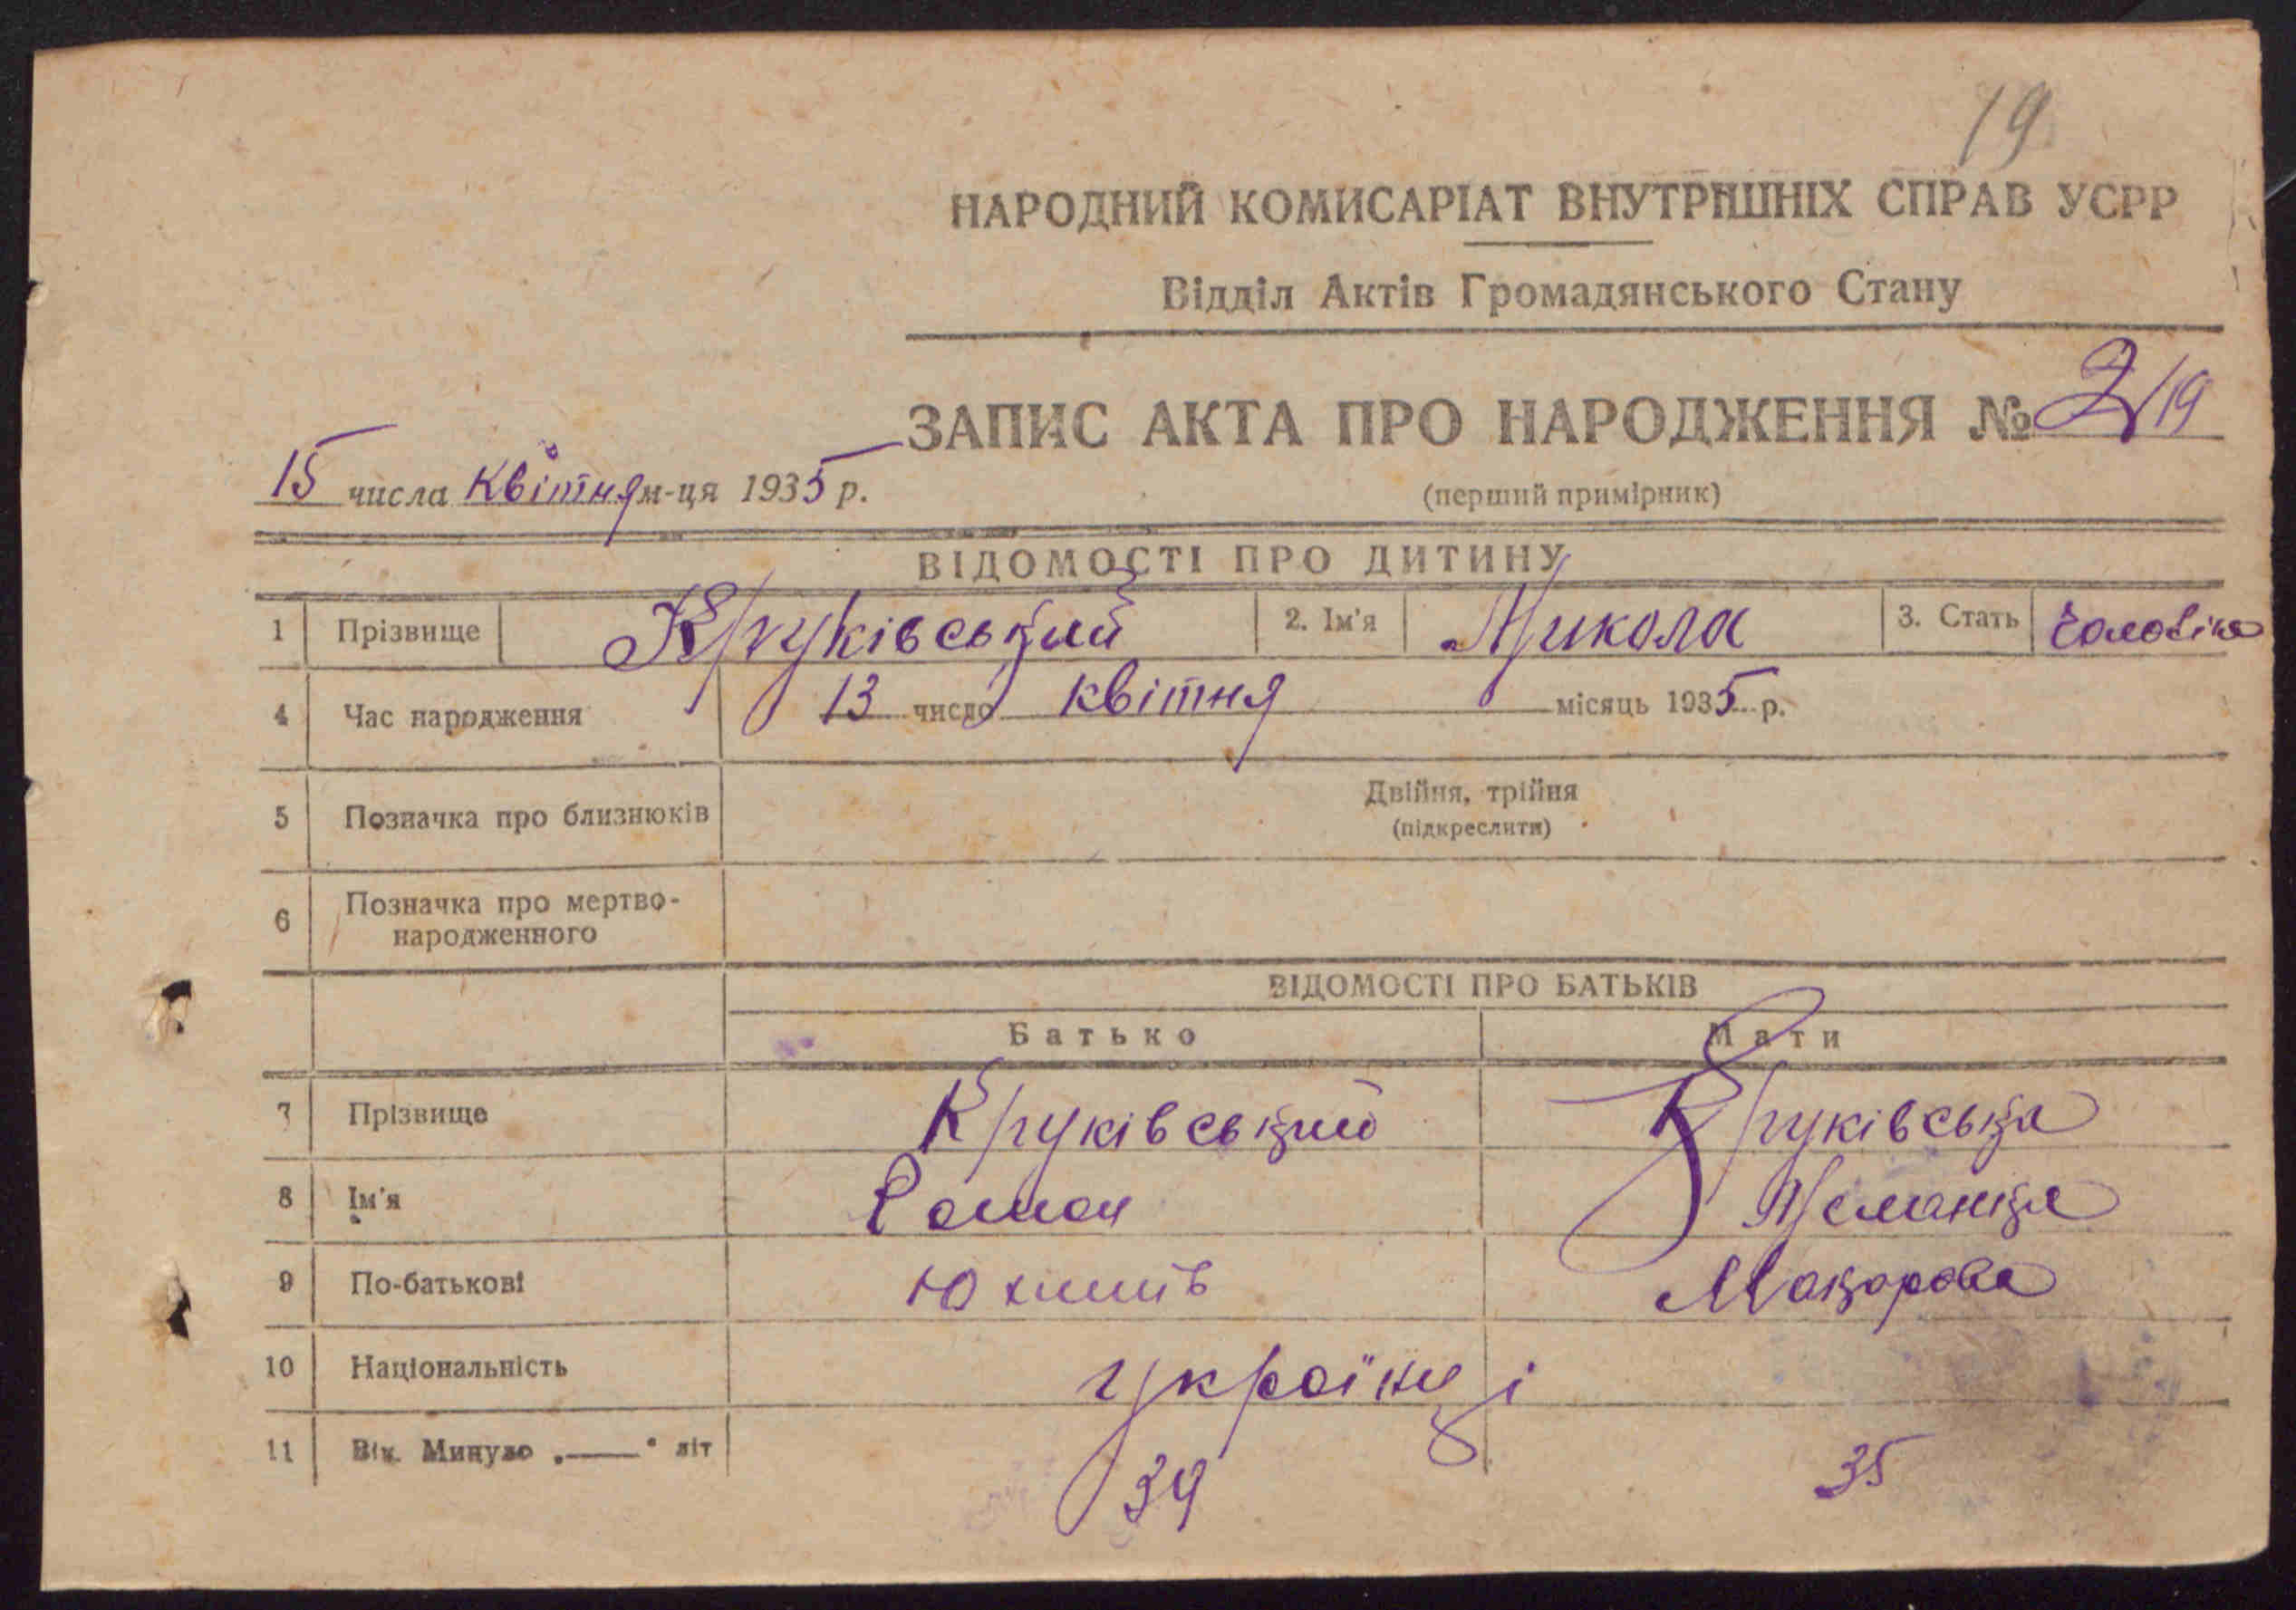 19
НАРОДНИЙ КОМИСАРІАТ ВНУТРІШНІХ СПРАВ УСРР
Відділ Актів Громадянського Стану
ЗАПИС АКТА ПРО НАРОДЖЕННЯ № 2/19
15 числа квітня м-ця 1935 р.
(перший примірник)
ВІДОМОСТІ ПРО ДИТИНУ
1 Прізвище Круківський 2. Ім'я Микола 3. Стать
4 Час народження 13 число квітня місяць 1935 р.
5 Позначка про близнюків Двійня, трійня
(підкреслити)
6 Позначка про мертво-
народженного
ВІДОМОСТІ ПРО БАТЬКІВ
Батько Мати
7 Прізвище Круківський Круківська
8 Ім'я Роман
9 По-батькові Юхимів Макарова
10 Національність українці
11 Вік. Минуло „——" літ 39 35